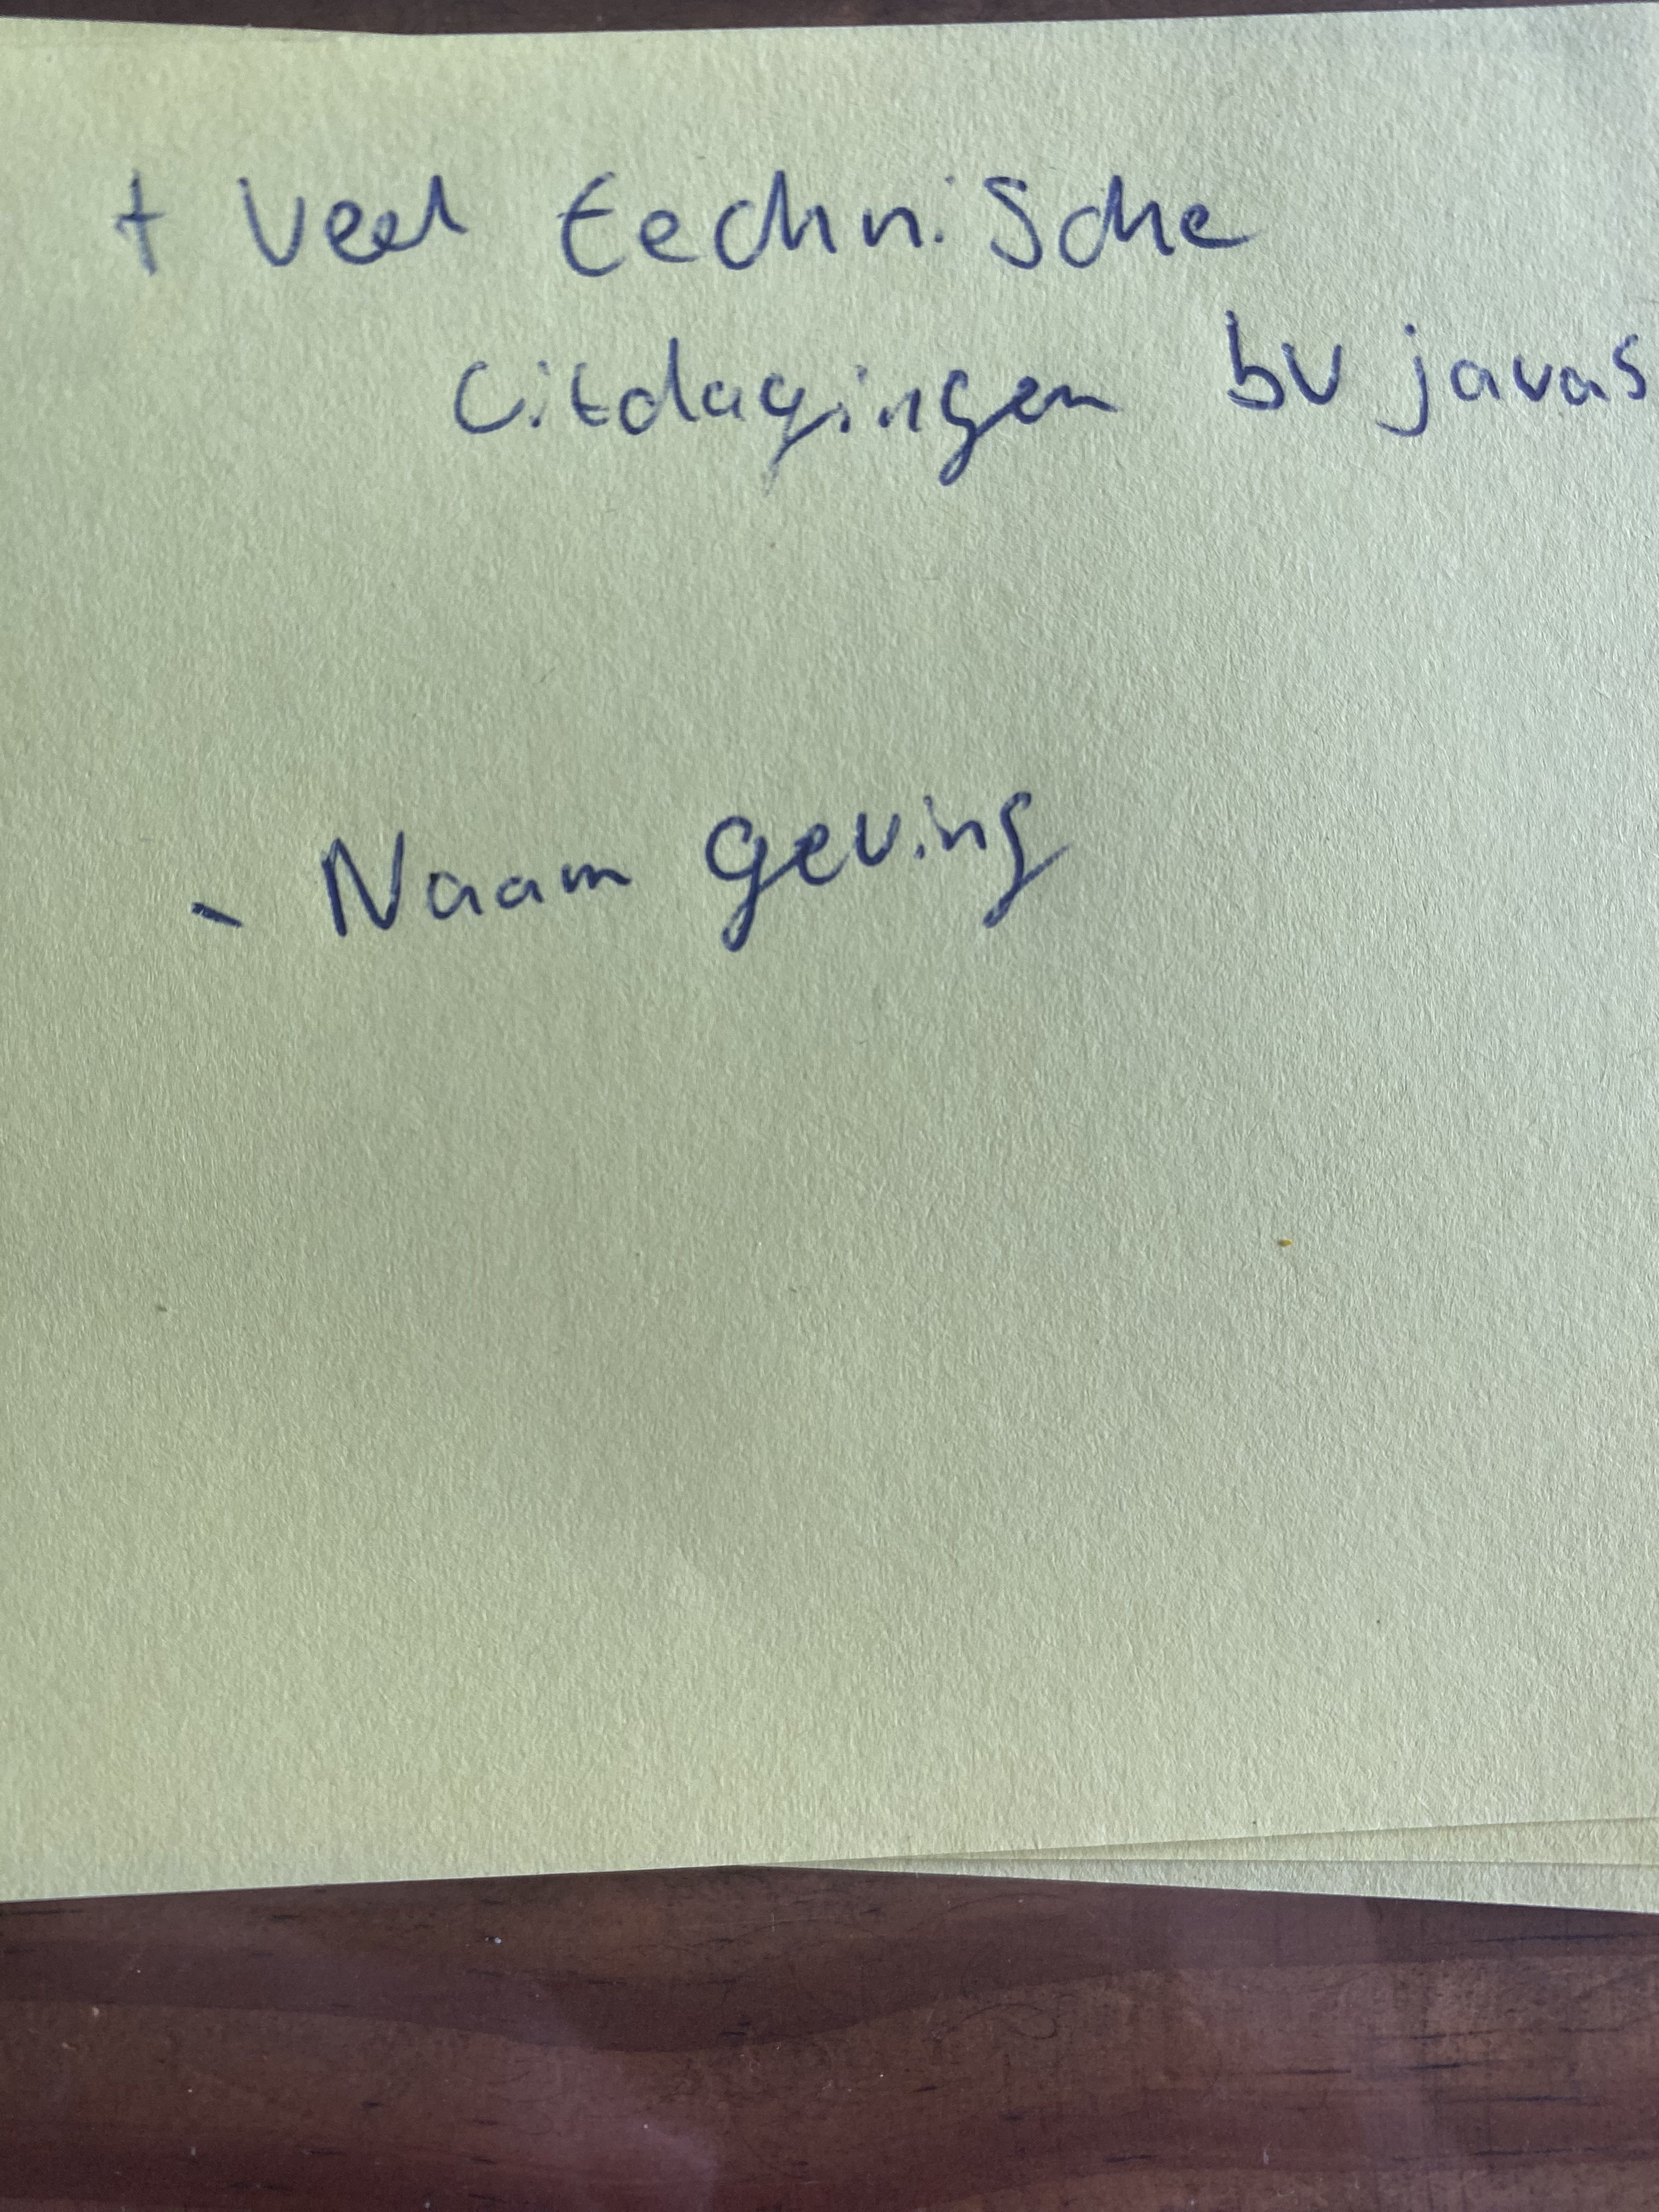 + Veel technische
uitdagingen bv javas
- Naam geving